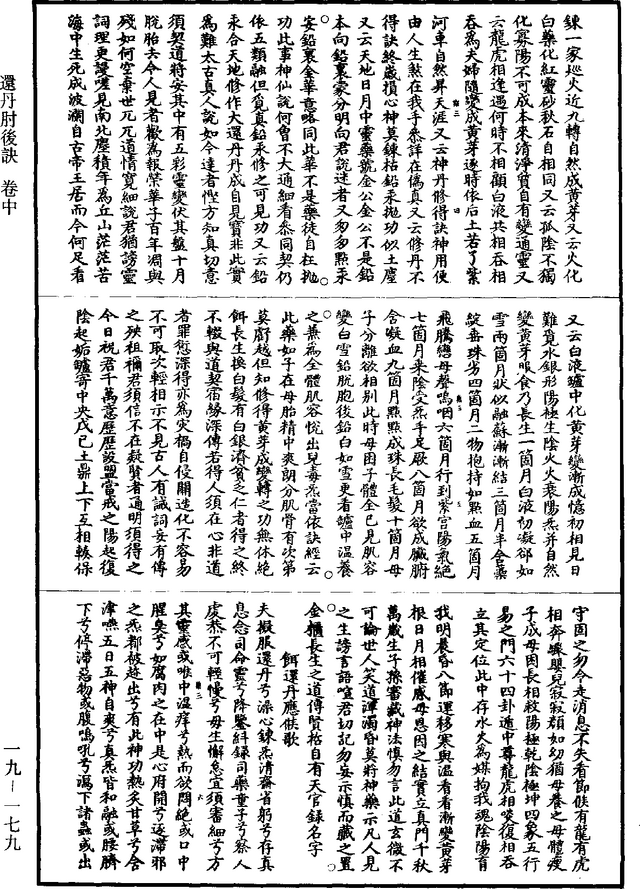 鍊一家近火近九轉自然成黃芽又云火化
白藥化紅靈砂秋石自相同又云孤陰不獨
化寡陽不可成本來清淨質自有變通靈又
云龍虎相逢遇何時不相顧白液共相吞相
吞為夫婦隨變成黃芽逐時依后土若了紫
河車自然昇天涯又云神丹修得訣神用便
由人生煞在我手悉詳在偽真又云修丹不
得訣終歲損心神莫鍊枯鉛汞拋功似土塵
又云天地日月中靈藥號金公金公不是鉛
本向鉛裏蒙分明向君說迷者又匆匆點汞
安鉛裏金華意略同此華不是藥徒自枉拋
功此事神仙說何曾不大通細看叅同契仍
依五類融但覓真鉛汞修之可見功又云鉛
汞合天地修作大還丹丹成自見寶非此實
為難太古真人說如今達者慳方知真切意
須契道將妄其中有五彩靈變伏其盤十月
脫胎去今人見者歡為報榮華子百年凋與
殘如何空棄世兀兀道情寬細說君猶謗靈
詞理更謾嗟見南北塵積年為丘山茫茫苦
海中生死成波瀾自古帝王居而今何足看
又云白液爐中化黃芽變漸成憶初相見日
難覓水銀形陽極生陰火火衰陽炁并自然
變黃芽服食乃長生一箇月白液初凝卻如
雪兩箇月狀似融蘇漸漸結三箇月半含藥
綻番珠劣四箇月二物抱持如點血五箇月
飛騰戀母聲嗚咽六箇月行到紫宮陽氣絕
七箇月來陰受炁手足厥八箇月欲成臟腑
含凝血九箇月點點成珠長毛髮十箇月母
子分離欲相別此時母困子體全已見肌容
變白雪鉛脫胞後鉛白如雪更看爐中溫養
之無為全體肌容悅出兒毒炁當依訣經云
此藥如子在母胎精中爽朗分肌骨有次第
莫虧越但知修得黃芽成變轉之功無休絕
餌長生換白髮有白銀濟貧乏仁者得之終
不輟與道契宿緣深傳若得人須在心非道
者罪愆深得亦為灾禍自侵關造化不容易
不可取次輕相示不見古人有誡詞妄有傳
之殃祖禰君須信不在疑賢者道明須得之
今日祝君千萬意歷歷設盟當戒之陽起復
陰起姤爐寄中央戊己土鼎上下互相輳保
守固之勿令走消息不失看節候有龍有虎
相奔嚥嬰兒寂寂顏如幼猶母養之母體瘦
子成母因長相救陽極乾陰極坤四象五行
易之門六十四卦遁中尊龍虎相啖復相吞
立其定位此中存水火為媒拘我魂陰陽育
我明晨昏八節運移寒與溫看看漸變黃芽
根日月相催感母恩因之結實立真門千秋
萬歲生子孫審藏神法慎勿言此道玄微不
可論世人笑道渾濁昏莫將神藥示凡人見
之生謗言語喧君切記勿妄示慎而藏之置
金櫃長生之道傳賢格自有天官錄名字
餌還丹應候歌
夫擬服還丹兮澡心鍊炁清齋省躬兮存真
息念司命靈兮降鑒糾録司藥童子兮察人
虔恭不可輕慢兮毋生懈怠宜須審細兮方
其靈感或喉中溫痒兮熱而欲悶絕或口中
腥臭兮如腐肉之在中是心府開兮逐滯邪
之炁都被趂出兮有此神功熱炙甘草兮含
津嚥五日五神自爽兮真炁皆和融或腰臍
下兮停滯惡物或腹鳴吼兮瀉下諸蟲或出
還丹肘後訣 卷中
一九-一七九